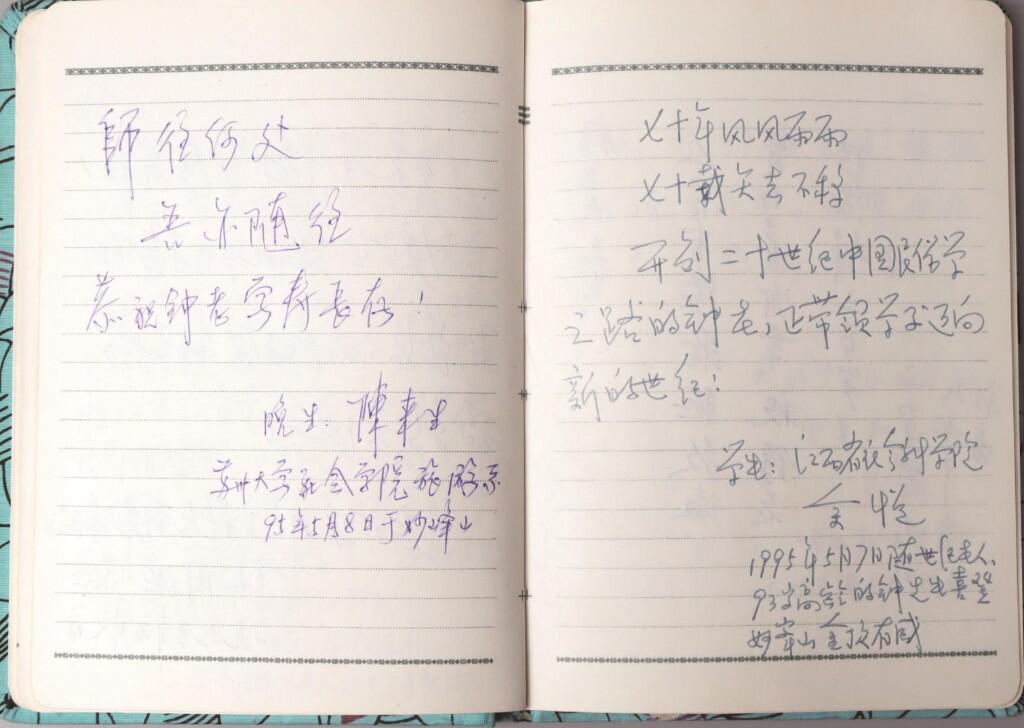 師往何处
吾亦随往
恭祝钟老学寿长存！
晚生：陳来生
苏州大学社会学院旅游系
95年5月8日于妙峰山
七十年风风雨雨
七十载矢志不移
开创二十世纪中国民俗学
之路的钟老，正带领学子迈向
新的世纪：
学生：江西省社会科学院
余悦
1995年5月7日随世纪老人、
93岁高龄的钟先生喜登
妙峰山金顶有感